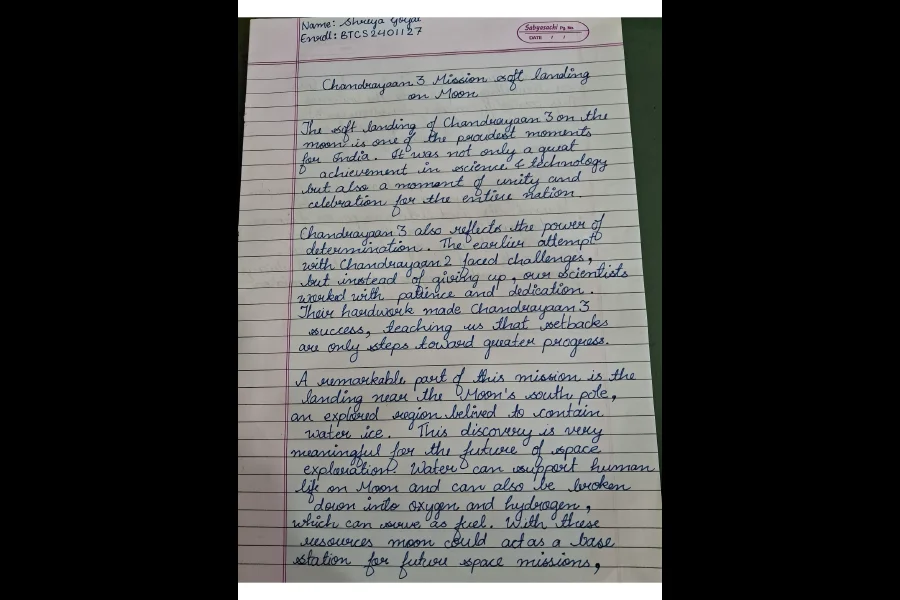 Name: Shreya Goyal
Enroll: BTCS2401127
Sabyasachi Pg. No.
DATE / /
Chandrayaan 3 Mission soft landing
on Moon
The soft landing of Chandrayaan 3 on the
moon is one of the proudest moments
for India. It was not only a great
achievement in science & technology
but also a moment of unity and
celebration for the entire nation.
Chandrayaan 3 also reflects the power of
determination. The earlier attempt
with Chandrayaan 2 faced challenges,
but instead of giving up, our scientists
worked with patience and dedication.
Their hardwork made Chandrayaan 3
success, teaching us that setbacks
are only steps toward greater progress.
A remarkable part of this mission is the
landing near the Moon's south pole,
an explored region belived to contain
water ice. This discovery is very
meaningful for the future of space
exploration. Water can support human
life on Moon and can also be broken
down into oxygen and hydrogen,
which can serve as fuel. With these
resources moon could act as a base
station for future space missions,